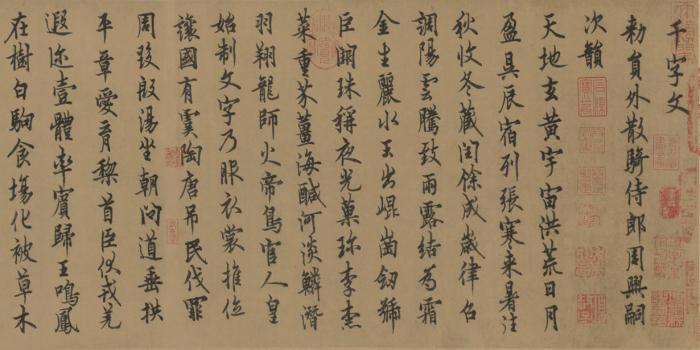 千字文
勅員外散騎侍郎周興嗣
次韻
天地玄黃宇宙洪荒日月
盈昃辰宿列張寒来暑往
秋收冬藏閏餘成歲律召
調陽雲騰致雨露結為霜
金生麗水玉出崐崗劒號
巨闕珠稱夜光菓珍李柰
菜重芥薑海鹹河淡鱗潛
羽翔龍師火帝鳥官人皇
始制文字乃服衣裳推位
讓國有虞陶唐吊民伐罪
周發殷湯坐朝問道垂拱
平章愛育黎首臣伏戎羌
遐迩壹體率賓歸王鳴鳳
在樹白駒食場化被草木